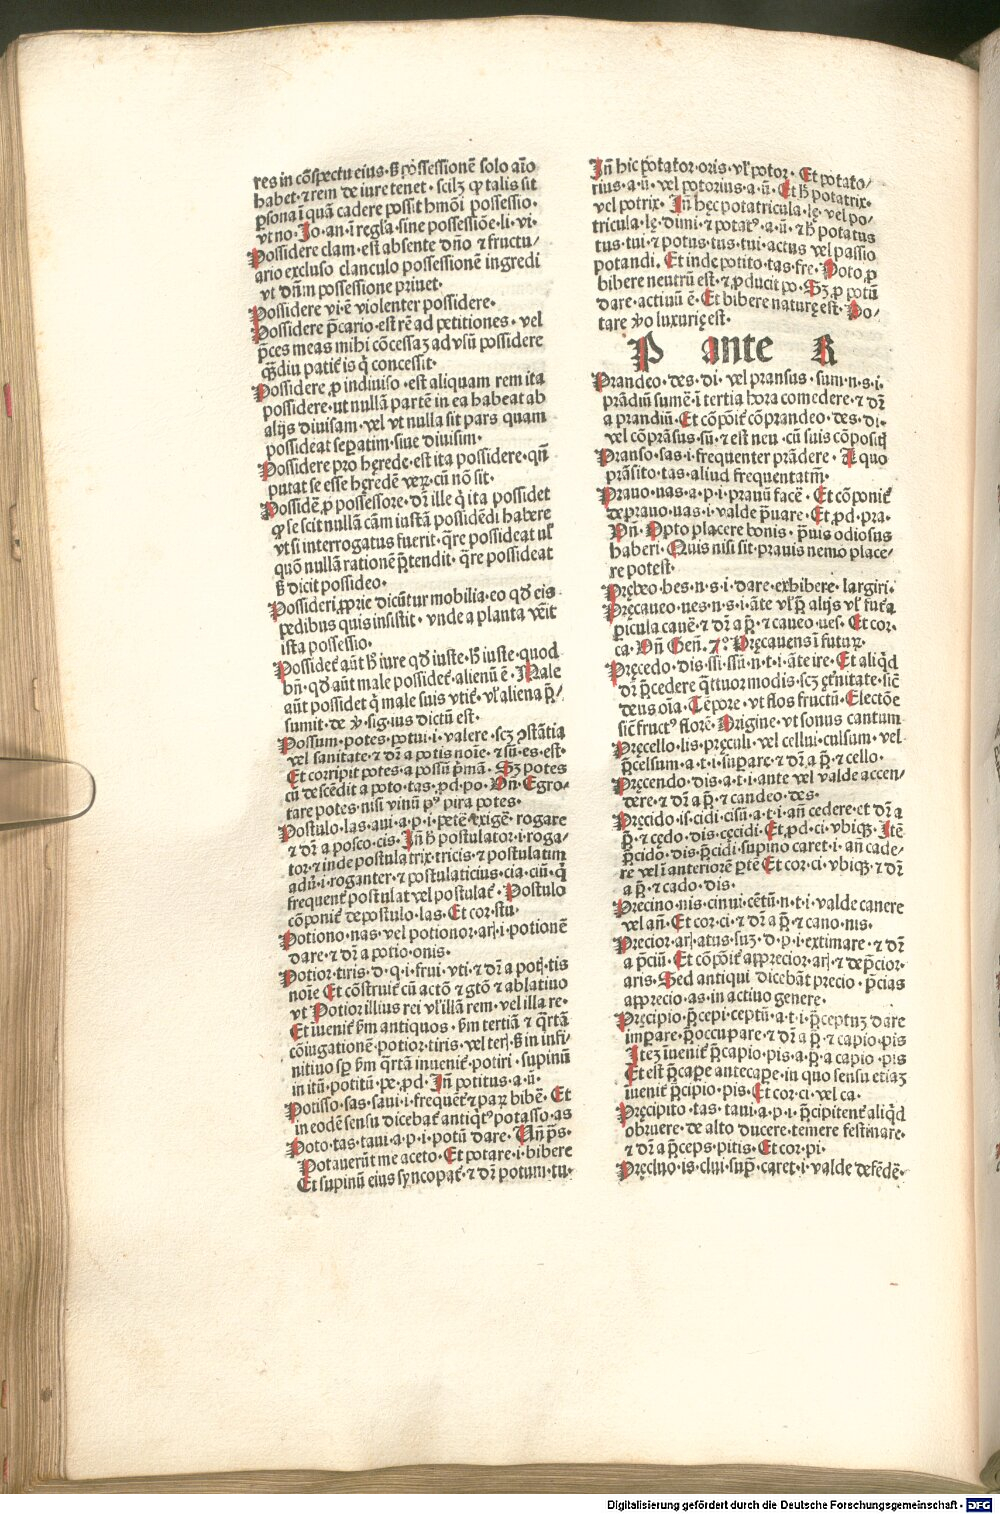 res in cōspectu eius· s̄ possessionē solo aīo
habet· ⁊ rem de iure tenet· scilꝫ ꝙ talis sit
ꝑsona ī quā cadere possit hmōi possessio·
vt no· Jo· an· ī regl̄a· sine possessiōe· li· vi·
Possidere clam· est absente dño ⁊ fructu/
ario excluso clanculo possessionē ingredi
vt dn̄m possessione priuet·
Possidere vi· ē violenter possidere·
Possidere p̄cario· est rē ad petitiones· vel
p̄ces meas mihi cōcessaꝫ ad vsū possidere
qm̄diu patiť is q̇ concessit·
Possidere ꝓ indiuiso· est aliquam rem ita
possidere· ut nullā partē in ea habeat ab
alijs diuisam· vel vt nulla sit pars quam
possideat seꝑatim· siue diuisim·
Possidere pro hęrede· est ita possidere· qn̄
putat se esse hęredē veꝝ· cū nō sit·
Possidē ꝓ possessore· dr̄ ille q̇ ita possidet
ꝙ se scit nullā cām iustā possidēdi habere
vt si interrogatus fuerit· q̄re possideat uľ
quō nullā rationē p̄tendit· q̄re possideat
s̄ dicit possideo·
Possideri ꝓprie dicūtur mobilia· eo ꝙ eis
pedibus quis insistit· vnde a planta vēit
ista possessio·
Possideť aūt hͦ iure qd̄ iuste· hͦ iuste· quod
bn̄· qd̄ aūt male possideť· alienū ē· Male
aūt possidet q̇ male suis vtiť· vľ aliena p̄/
sumit· de ꝟ· sig· ius dictū est·
Possum· potes· potui· i· valere· scꝫ ꝯstātia
vel sanitate· ⁊ dr̄ a potis noīe· ⁊ sū· es· est·
Et corripit potes· a possū p̄mā· Sꝫ potes
cū descēdit a poto· tas· ꝓd· po· Vn̄· Egro/
tare potes· nisi vinū pꝰ pira potes·
Postulo· las· aui· a· p· i· petē· exigē· rogare
⁊ dr̄ a posco· cis· Jn̄ hͦ postulator· i· roga/
tor· ⁊ inde postulatrix· tricis· ⁊ postulatim
adū· i· roganter· ⁊ postulaticius· cia· ciū· q̇
frequenť postulat vel postulať· Postulo
cōponiť depostulo· las· Et cor· stu·
Potiono· nas· vel potionor· arj· i· potionē
dare· ⁊ dr̄ a potio· onis·
Potior· tiris· d· q· i· frui· vti· ⁊ dr̄ a potj· tis
noīe Et cōstruiť cū actō ⁊ gtō ⁊ ablatiuo
vt Potior illius rei vľ illā rem· vel illa re·
Et īuenit' ẜm antiquos· ẜm tertiā ⁊ q̄rtā
cōiugationē· potior· tiris· vel terj· s̄ in infi/
nitiuo sꝑ ẜm q̄rtā inueniť· potiri· supinū
in itū· potitū· pe· ꝓd· Jn̄ potitus· a· ū·
Potisso· sas· saui· i· frequēť ⁊ paꝝ bibē· Et
in eodē sensu dicebať antiqͥtꝰ potasso· as
Poto· tas· taui· a· p· i· potū dare· Vn̄ p̄s·
Potauerūt me aceto· Et potare· i· bibere
Et supinū eius syncopať· ⁊ dr̄ potum· tu·
Jn̄ hic potator· oris· vľ potor· Et potato/
rius· a· ū· vel potorius· a· ū· Et hͦ potatrix·
vel potrix· Jn̄ hęc potatricula· lę· vel po/
tricula· lę· dimi· ⁊ potatꝰ· a· ū· ⁊ hͦ potatus
tus· tui· ⁊ potus· tus· tui· actus vel passio
potandi· Et inde potito· tas· fre· Poto ꝓ
bibere neutrū est· ⁊ ꝓducit po· Sꝫ ꝓ potū
dare· actiuū ē· Et bibere naturę est· Po/
tare ꝟo luxurię est·
P ante R
Prandeo· des· di· vel pransus· sum· n· s· i·
prādiū sumē· ī tertia hora comedere· ⁊ dr̄
a prandiū· Et cōpōiť cōprandeo· des· di·
vel cōprāsus· sū· ⁊ est neu· cū suis cōpositꝭ
Pranso· sas· i· frequenter prādere· A quo
prāsito· tas· aliud frequentatiū·
Prauo· uas· a· p· i· prauū facē· Et cōponiť
deprauo· uas· i· valde p̄uare· Et ꝓd· pra·
Vn̄· Opto placere bonis· p̄uis odiosus
haberi· Quis nisi sit prauis nemo place/
re potest·
Prębeo· bes· n· s· i· dare· exhibere· largiri·
Pręcaueo· ues· n· s· i· āte vľ p̄ alijs vľ fut̄a
ꝑicula cauē· ⁊ dr̄ a p̄· ⁊ caueo· ues· Et cor·
ca· Vn̄ Gen̄· 7ͦ· Pręcauens ī futuꝝ·
Pręcedo· dis· ssi· ssū· n· t· i· āte ire· Et aliq̇d
dr̄ p̄cedere q̄ttuor modis· scꝫ ęťnitate· sic̄
deus oīa· Tēpore· vt flos fructū· Electōe
sic̄ fructꝰ florē· Origine· vt sonus cantum
Pręcello· lis· pręculi· vel cellui· culsum· vel
p̄celsum· a· t· i· suꝑare· ⁊ dr̄ a p̄· ⁊ cello·
Pręcendo· dis· a· t· i· ante vel valde accen/
dere· ⁊ dr̄ a p̄· ⁊ candeo· des·
Pręcido· is· cidi· cisū· a· t· i· an̄ cedere· et dr̄ a
p̄· ⁊ cędo· dis· cęcidi· Et ꝓd· ci· vbiqꝫ· Jtē
p̄cido· dis· p̄cidi supino caret· i· an̄ cade/
re vel ī anteriorē ꝑte Et cor· ci· vbiqꝫ· ⁊ dr̄
a p̄· ⁊ cado· dis·
Pręcino· nis· cinui· cētū· n· t· i· valde canere
vel an̄· Et cor· ci· ⁊ dr̄ a p̄· ⁊ cano· nis·
Pręcior· arj· atus· suꝫ· d· p· i· extimare· ⁊ dr̄
a p̄ciū· Et cōpōiť apprecior· arj· ⁊ dep̄cior·
aris· Sed antiqui dicebāt precio· p̄cias
apprecio· as· in actiuo genere·
Pręcipio· p̄cepi· ceptū· a· t· i· p̄ceptuꝫ dare
imperare· p̄occupare· ⁊ dr̄ a p̄· ⁊ capio· pis
Jteꝫ īueniť p̄capio· pis· a· p̄· a capio· pis
Et est p̄cape antecape· in quo sensu etiaꝫ
īueniť p̄cipio· pis· Et cor· ci vel ca·
Pręcipito· tas· taui· a· p· i· p̄cipitenť aliq̇d
obruere· de alto ducere· temere festinare·
⁊ dr̄ a p̄ceps· pitis· Et cor· pi·
Pręcluo· is· clui· sup̄· caret· i· valde defēdē·
Digitalisierung gefördert durch die Deutsche Forschungsgemeinschaft - DFG